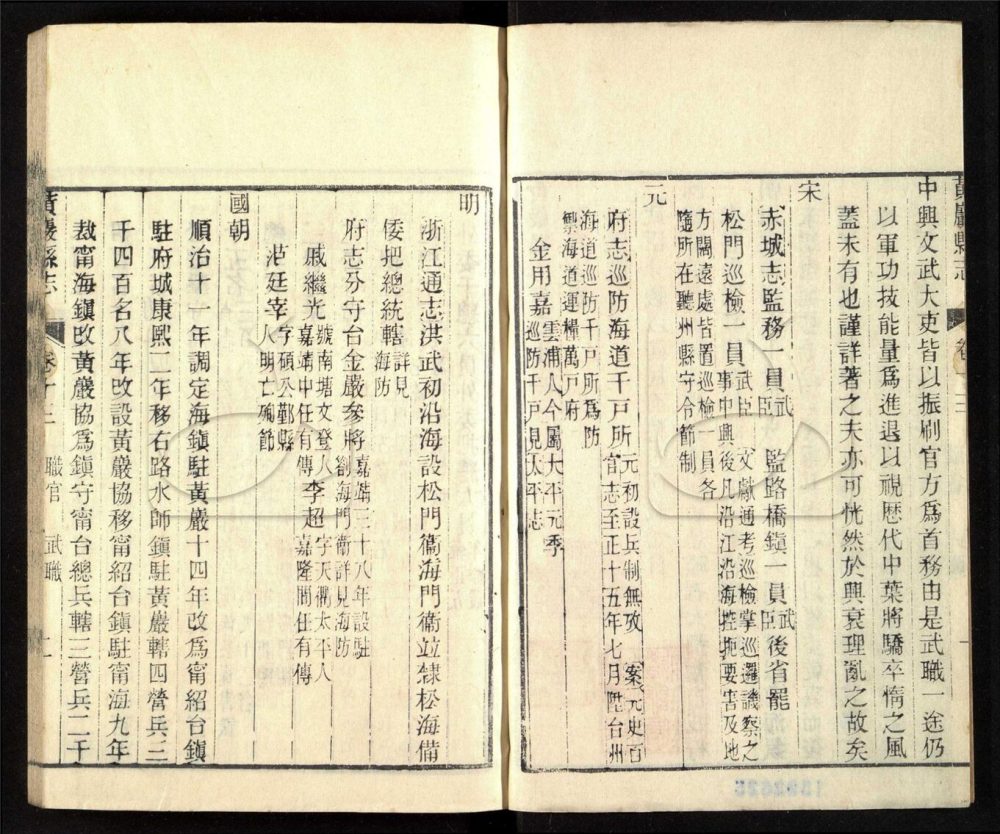 黃巖縣志
中興文武大吏皆以振刷官方爲首務由是武職一途仍
以軍功技能量爲進退以視歷代中葉將驕卒惰之風
蓋未有也謹詳著之夫亦可恍然於興衰理亂之故矣
宋
赤城志監務一員武臣 監路橋鎮一員武臣後省罷
松門巡檢一員武臣 文獻通考巡檢掌巡邏譏察之事中興後凡沿江沿海控扼要害及地
方闊遠處皆置巡檢一員各
隨所在聽州縣守令節制
元
府志巡防海道千戸所元初設兵制無攷 案元史百官志至正十五年七月陞台州
海道巡防千戸所爲防
禦海道運糧萬戸府
金用嘉雲浦人今屬太平元季巡防千戸見太平志
明
浙江通志洪武初沿海設松門衞海門衞竝隷松海備
倭把總統轄詳見海防
府志分守台金嚴參將嘉靖三十八年設駐劄海門衞詳見海防
戚繼光號南塘文登人嘉靖中任有傳 李超字天衢太平人嘉隆間任有傳
范廷宰字碩公鄞縣人明亡殉節
國朝
順治十一年調定海鎮駐黃巖十四年改爲甯紹台鎮
駐府城康熙二年移右路水師鎮駐黃巖轄四營兵三
千四百名八年改設黃巖協移甯紹台鎮駐甯海九年
裁甯海鎮改黃巖協爲鎮守甯台總兵轄三營兵二千
黃巖縣志
卷十三
職官 武職